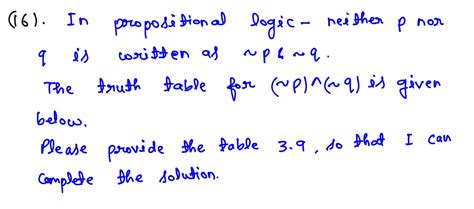 (16). In propositional logic - neither p nor
q is written as ~p & ~q.
The truth table for (~p)^(~q) is given
below.
Please provide the table 3.9, so that I can
Complete the solution.